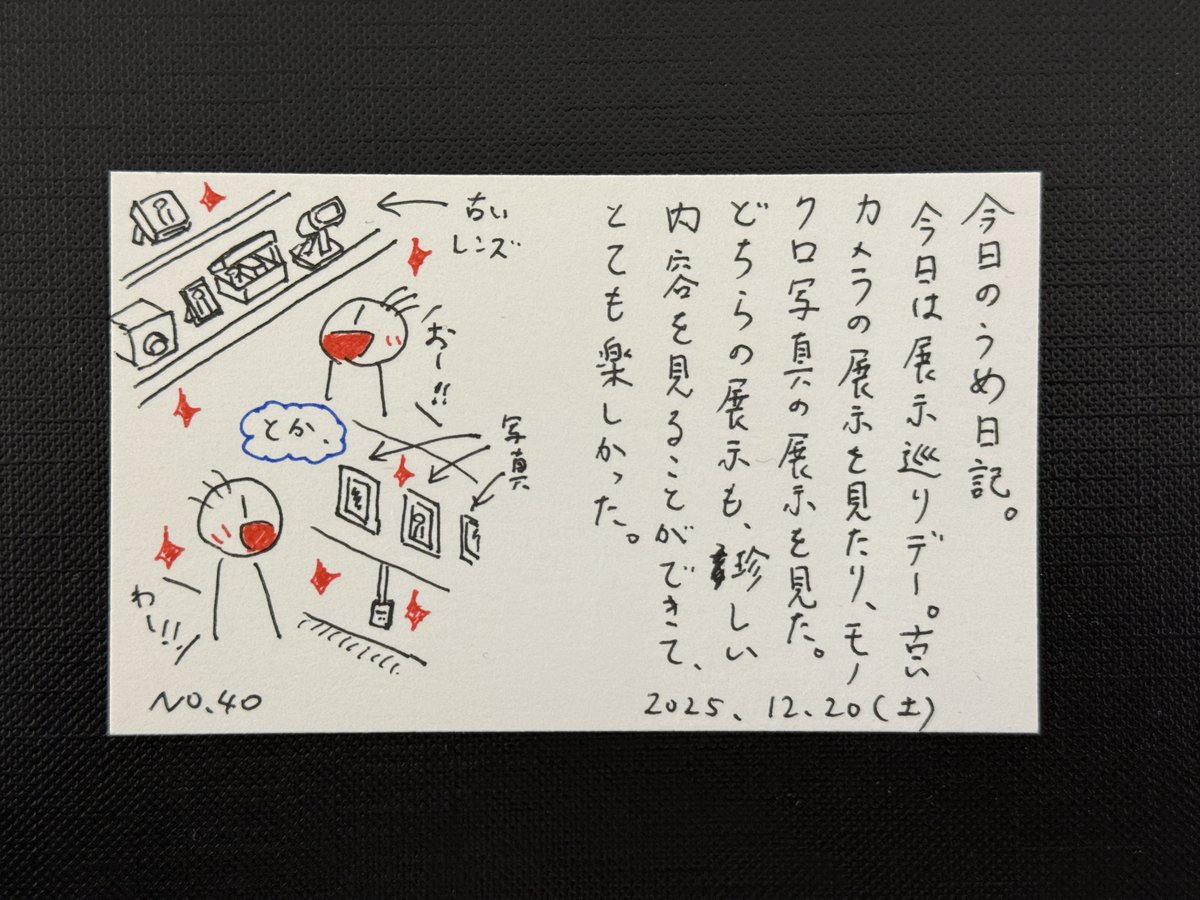 今日のうめ日記。
今日は展示巡りデー。古い
カメラの展示を見たり、モノ
クロ写真の展示を見た。
どちらの展示も、珍しい
内容を見ることができて、
とても楽しかった。
2025.12.20(土)
古い
レンズ
おー!!
とか、
写真
わー!!
NO.40